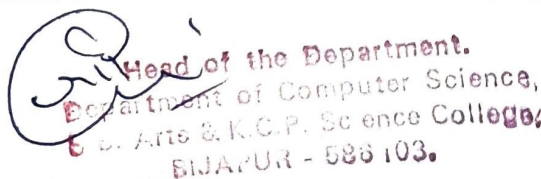 Head of the Department.
Department of Computer Science,
Arts & K.C.P. Science College,
BIJAPUR - 586103.